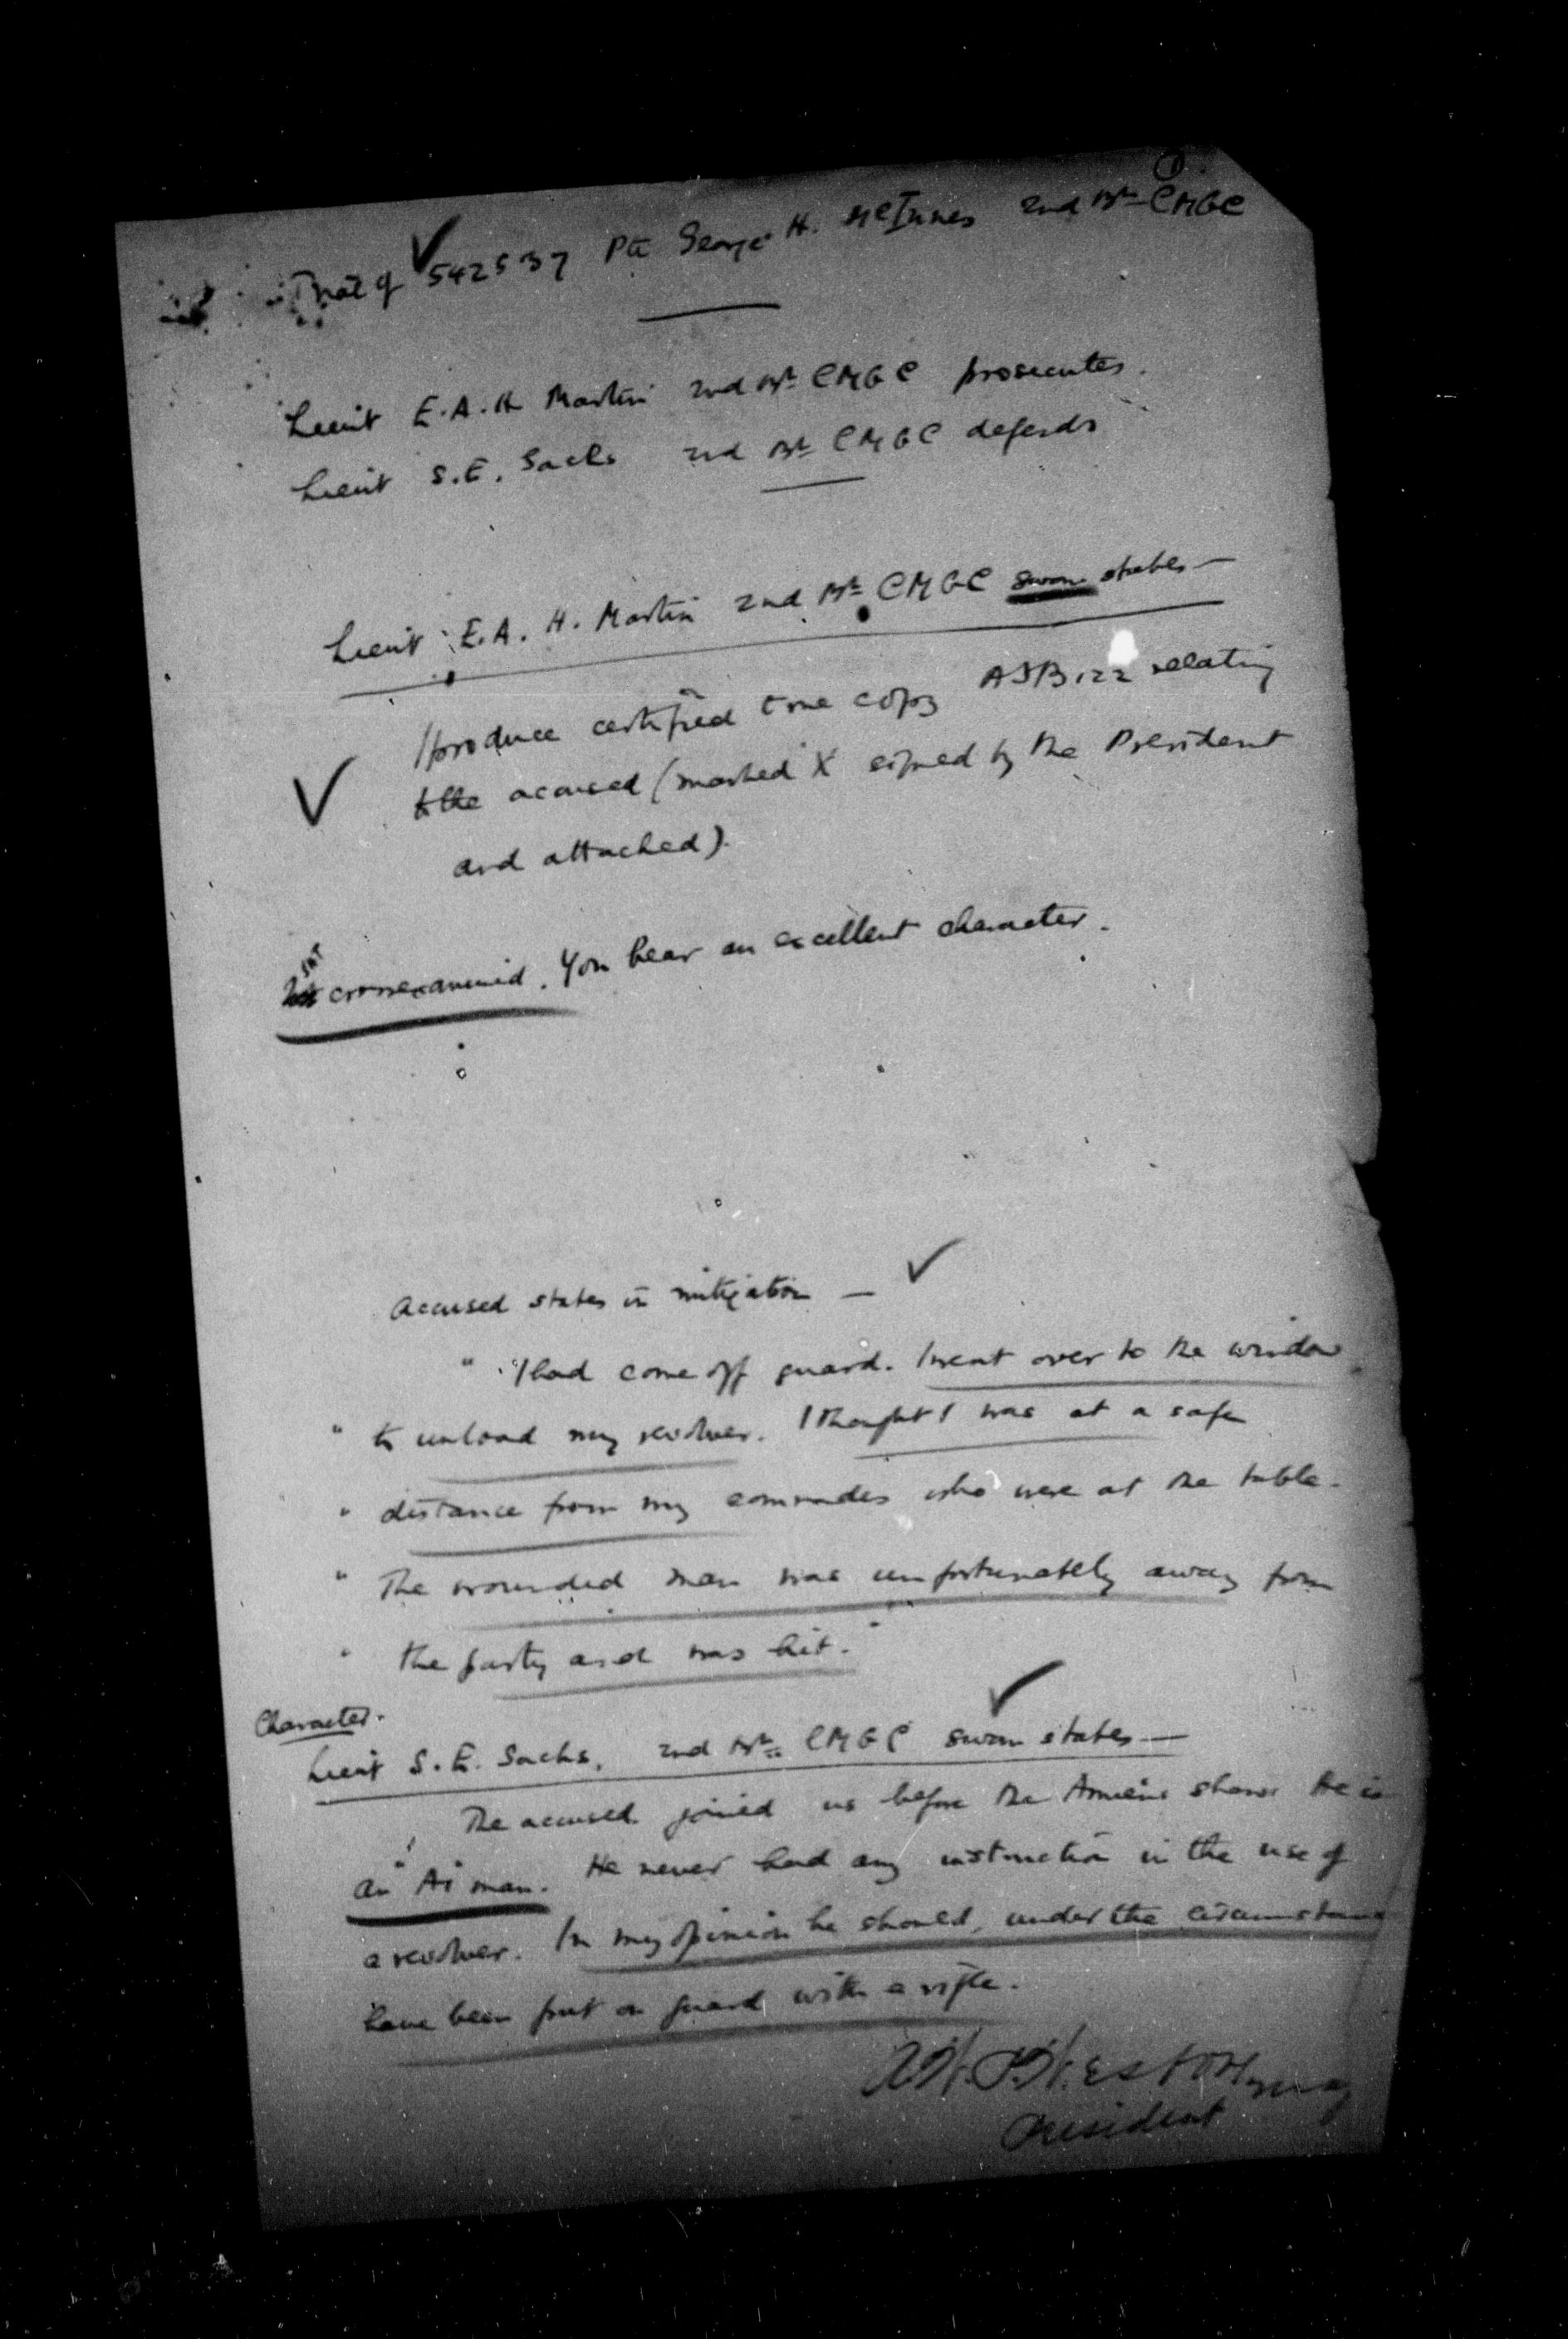 1
Trial of 542537 Pte George H. McInnes 2nd Bn CMGC
Lieut E.A.H Martin 2nd Bn CMGC prosecutes.
Lieut S.E. Sachs 2nd Bn CMGC defends
Lieut E.A.H. Martin 2nd Bn CMGC sworn states —
I produce certified true copy AFB 122 relating
to the accused (marked X signed by the President
and attached).
crossexamined. You bear an excellent character.
Accused states in mitigation —
" I had come off guard. I went over to the window
" to unload my revolver. I thought I was at a safe
" distance from my comrades who were at the table.
" The wounded man was unfortunately away from
" the party and was hit."
Character.
Lieut S.E. Sachs, 2nd Bn CMGC sworn states —
The accused joined us before the Amiens show. He is
an "A1 man. He never had any instruction in the use of
a revolver. In my opinion he should, under the circumstances
have been put on guard with a rifle.
President